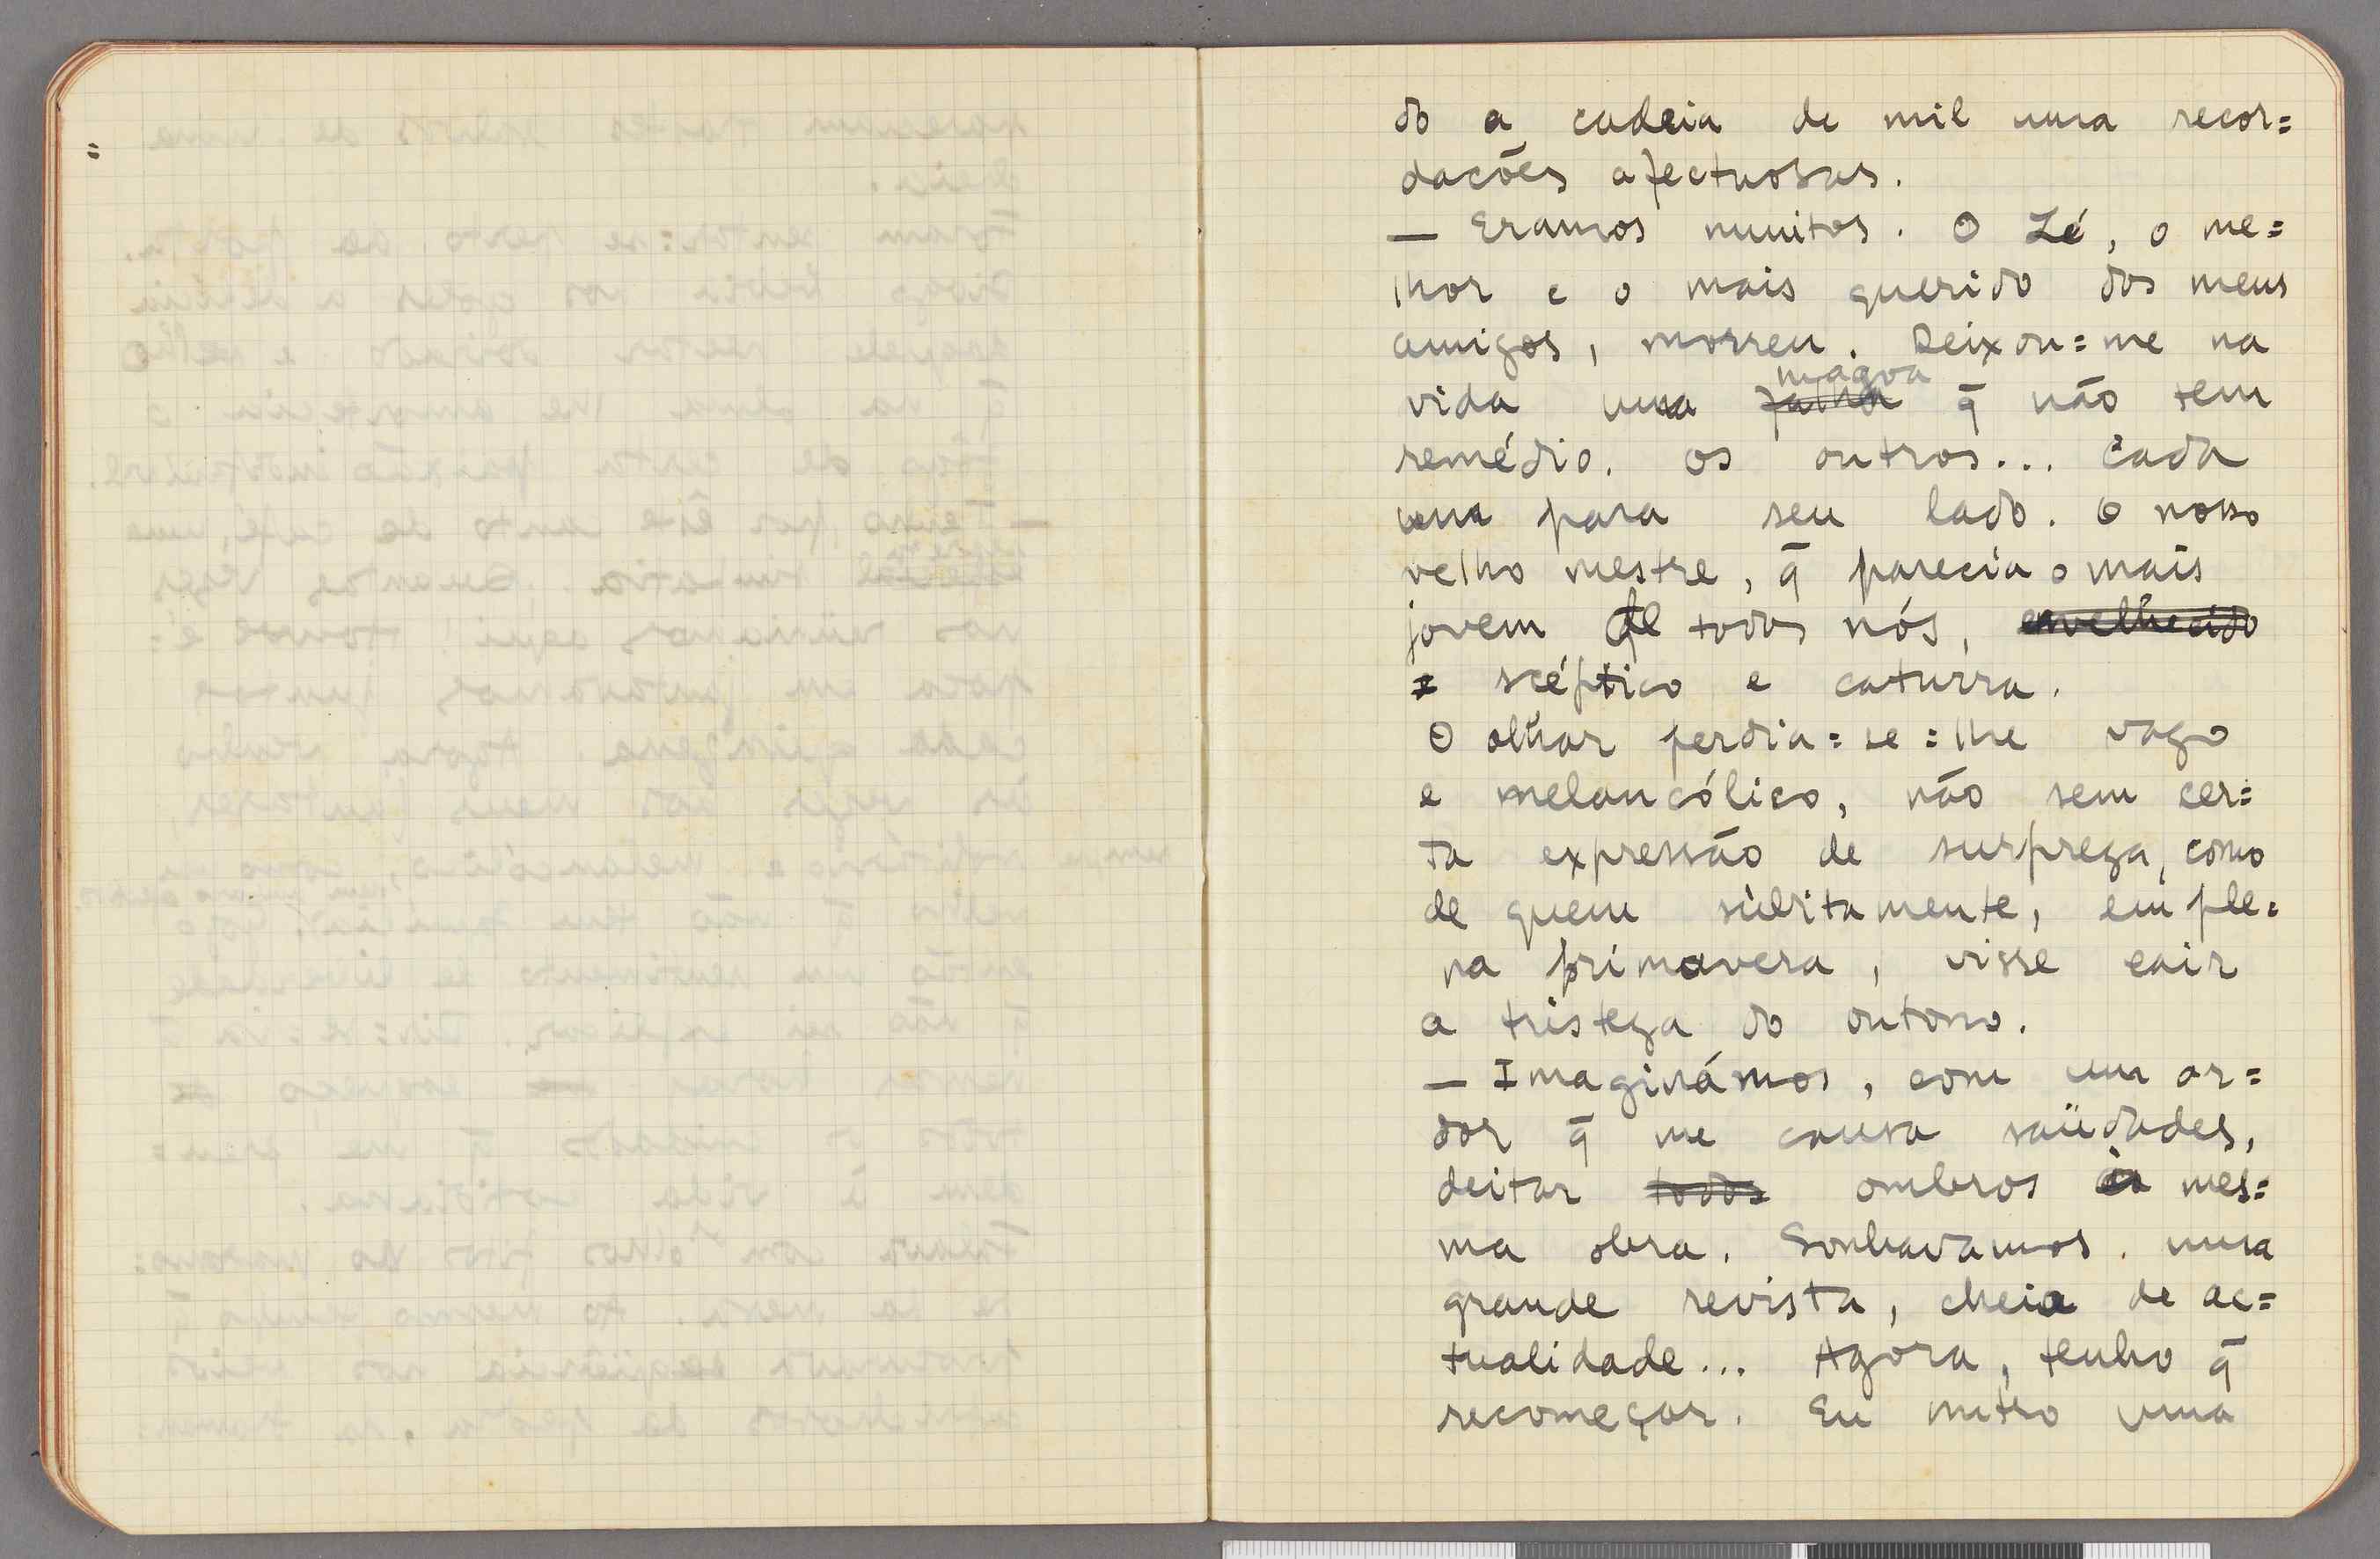 do a cadeia de mil uma recor=
dações afectuosas.
— Eramos muitos. O Zé, o me=
lhor e o mais querido dos meus
amigos, morreu. Deixou=me na
magoa
vida uma falha q̄ não tem
remédio. Os outros... Cada
um para seu lado. O nosso
velho mestre, q̄ parecia o mais
jovem de todos nós, envelhecido
scéptico e caturra.
O olhar perdia=se=lhe vago
e melancólico, não sem cer=
ta expressão de surpreza, como
de quem sùbitamente, em ple=
na primavera, visse cair
a tristeza do outono.
— Imaginámos, com um ar=
dor q̄ me causa saüdades,
deitar todos ombros à mes=
ma obra. Sonhavamos uma
grande revista, cheia de ac=
tualidade... Agora, tenho q̄
recomeçar. Eu nutro uma